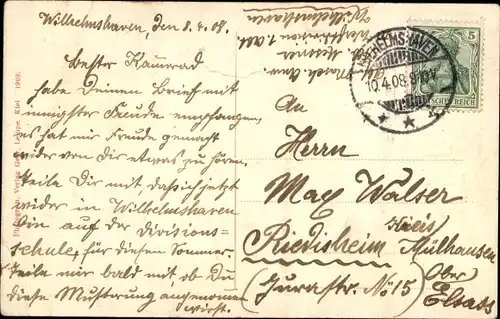 Wilhelmshaven, den 8.4.08.
Bester Kamerad
habe Deinen Brief mit
innigster Freude empfangen,
es hat mir Freude gemacht
wieder von Dir etwas zu hören,
teile Dir mit, dass ich jetzt
wieder in Wilhelmshaven
bin auf der Divisions-
schule, für diesen Sommer.
Teile mir bald mit, ob Du
diese Musterung angenommen
wirst.
Wilhelmshaven
WILHELMSHAVEN
10.4.08
5
DEUTSCHES REICH
An
Herrn
Max Walser
Riedisheim Kreis Mülhausen
(Jurastr. No 15) Ober
Elsass
Verlag Gebr. Lempe, Kiel 1908.